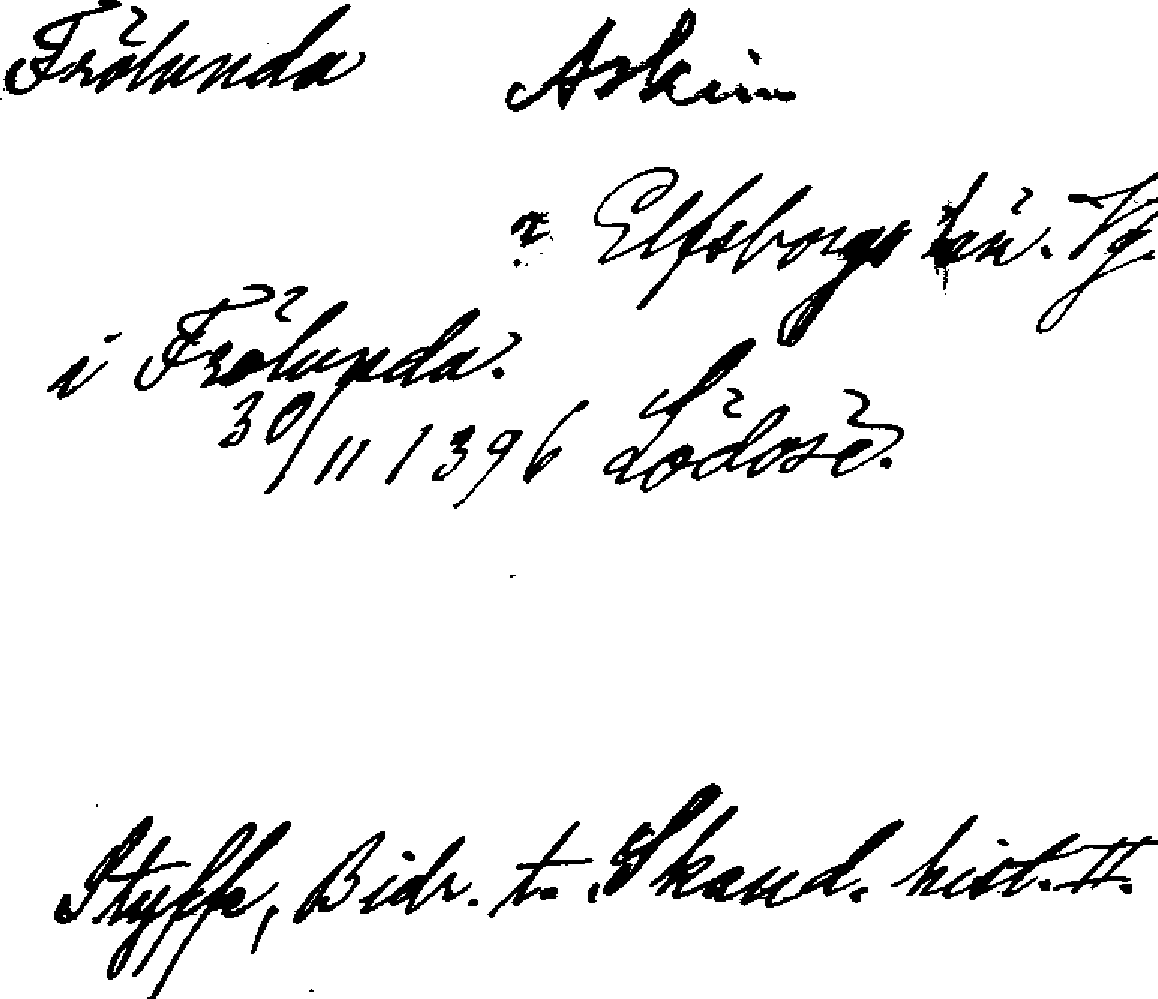 Frölunda Askim
? Elfsborgs län. Vg.
i Frölunda.
30/11 1396 Lödose.
Styffe, Bidr. t. Skand. hist. II.